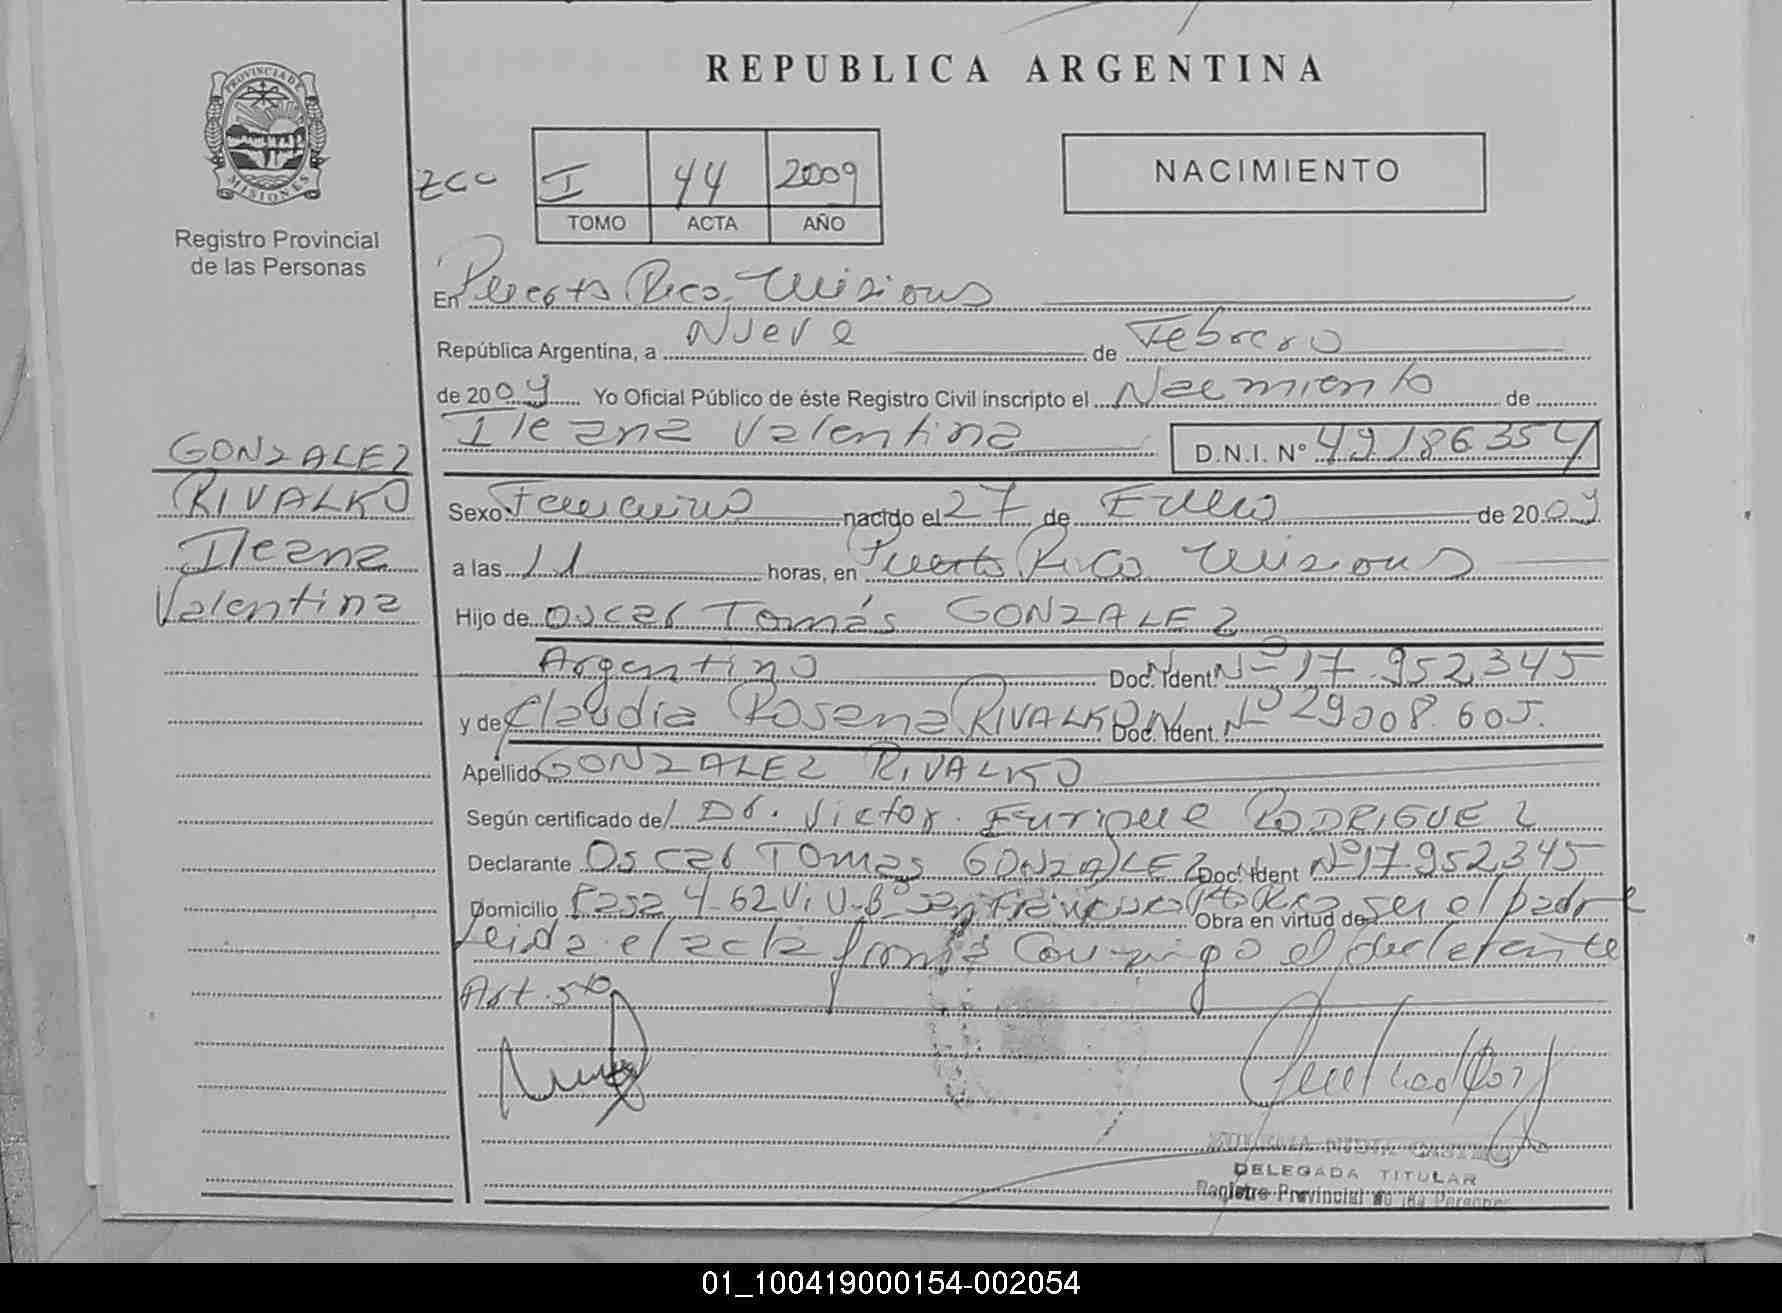 REPUBLICA ARGENTINA
PROVINCIA DE
MISIONES
Registro Provincial
de las Personas
I 44 2009
TOMO ACTA AÑO
NACIMIENTO
En Puerto Rico, Misiones
República Argentina, a Nueve de Febrero
de 2009 Yo Oficial Público de éste Registro Civil inscripto el Nacimiento de
Ileana Valentina D.N.I. Nº 49186354
GONZALEZ
RIVALKO
Ileana
Valentina
Sexo Femenino nacido el 27 de Enero de 2009
a las 11 horas, en Puerto Rico Misiones
Hijo de Oscar Tomás GONZALEZ
Argentino Doc. Ident. Nº 17.952.345
y de Claudia Rosana RIVALKO Doc. Ident. Nº 29008.605.
Apellido GONZALEZ RIVALKO
Según certificado del Dr. Victor Enrique RODRIGUEZ
Declarante Oscar Tomas GONZALEZ Doc. Ident Nº 17.952.345
Domicilio Casa 4-62 Viv. Bº San Francisco Pto Rico Obra en virtud de ser el padre
Leida el acta firma conmigo el declarante
Art. 5to
DELEGADA TITULAR
Registro Provincial de las Personas
01_100419000154-002054